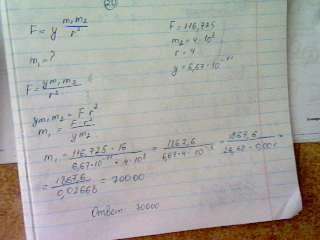 F = γ m₁m₂ / r²
m₁ = ?
F = γm₁m₂ / r²
γm₁m₂ = F r²
m₁ = F·r² / γm₂
F = 116,725
m₂ = 4·10⁸
r = 4
γ = 6,67·10⁻¹¹
m₁ = 116,725·16 / 6,67·10⁻¹¹·4·10⁸ = 1867,6 / 6,67·4·10 = 1867,6 / 26,68·0,001 =
= 1867,6 / 0,02668 = 70000
Ответ 70000